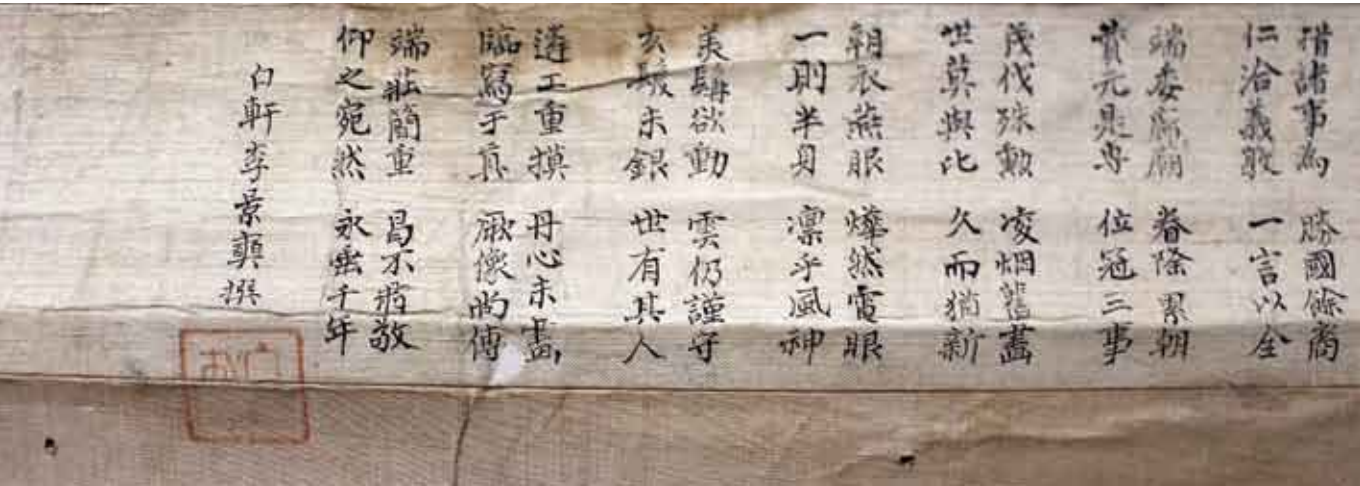 措諸事為 勝國餘裔
仁洽義敦 一言以全
端委廊廟 眷隆累朝
元 位冠三事
茂伐殊勳 凌烟舊畵
世莫與比 久而猶新
朝衣燕服 燁然電眼
一則半身 凜乎風神
美鬚欲動 雲仍謹守
玄未銀 世有其人
遴工重摸 丹心未畵
臨寫于真 厥像尚傳
端莊簡重 曷不敬
仰之宛然 永垂千年
白軒李景奭撰